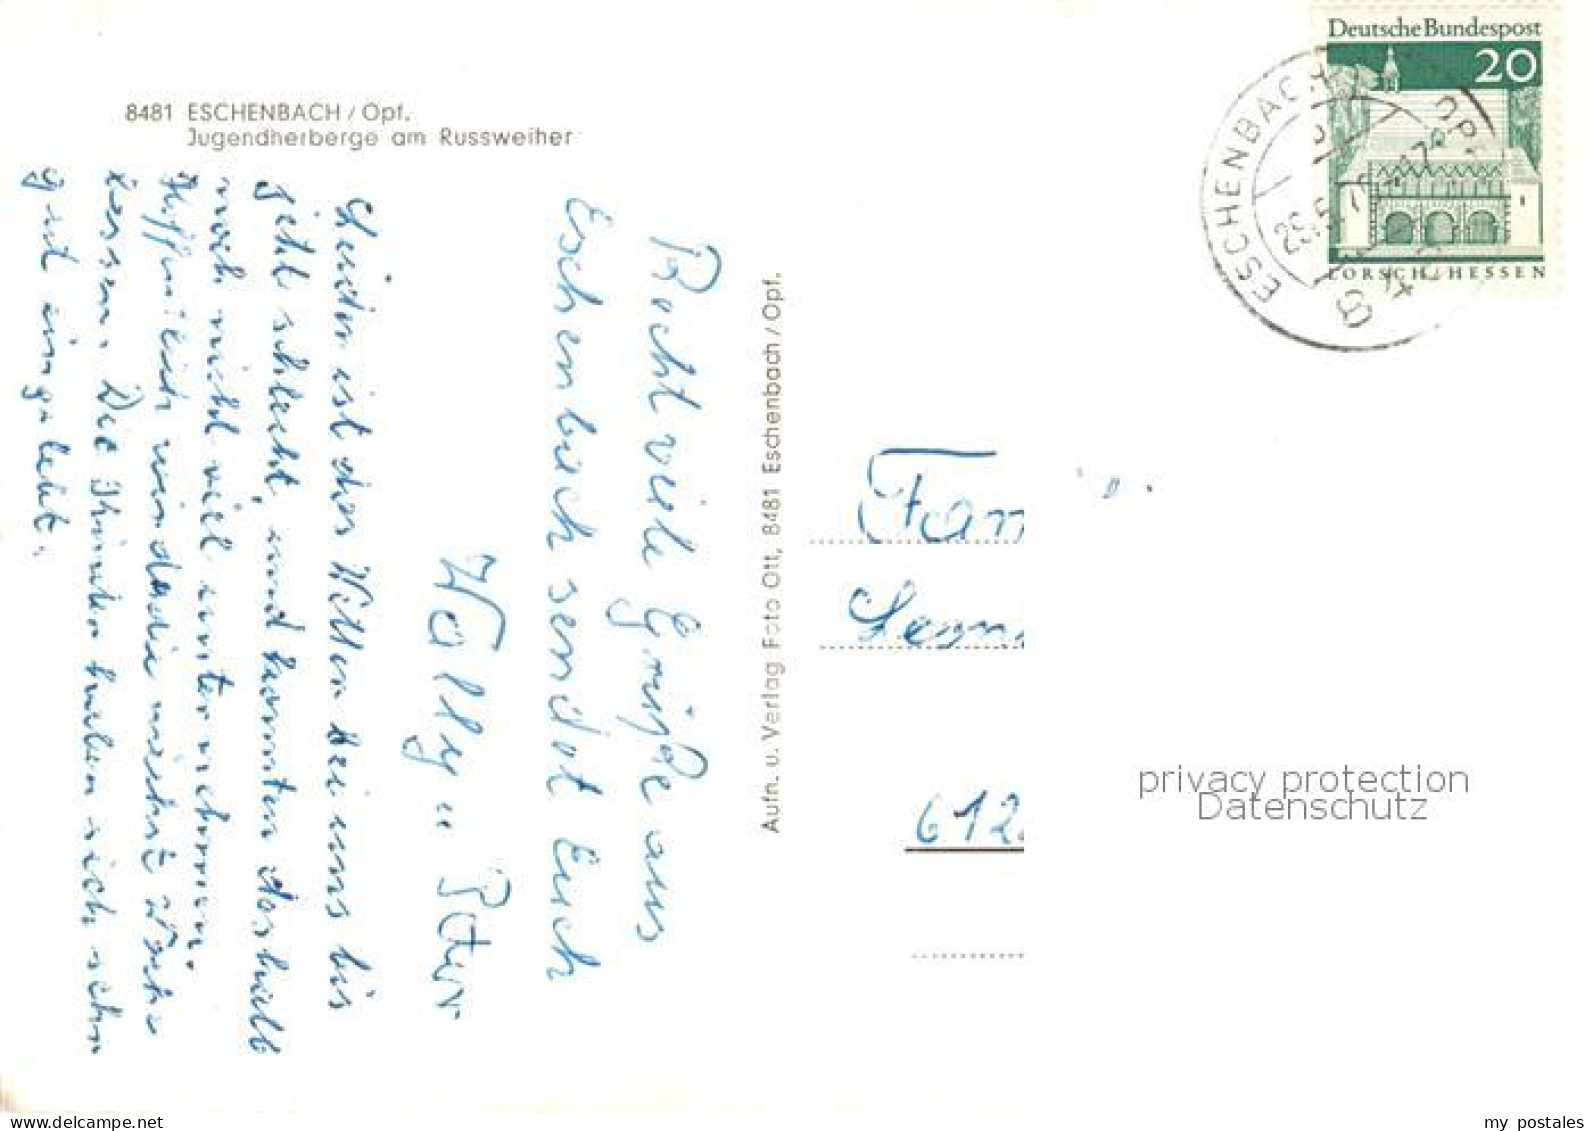 8481 ESCHENBACH / Opf.
Jugendherberge am Russweiher
Recht viele Grüße aus
Eschenbach sendet Euch
Wally u Peter
Leider ist das Wetter bei uns bis
jetzt schlecht, und konnten deshalb
noch nicht viel unternehmen.
Hoffentlich wird die nächste Woche
besser. Die Kinder haben sich schon
gut eingelebt.
Aufn. u. Verlag Foto Ott, 8481 Eschenbach / Opf.
Deutsche Bundespost
20
LORSCH / HESSEN
ESCHENBACH
Fam
612
privacy protection
Datenschutz
my postales